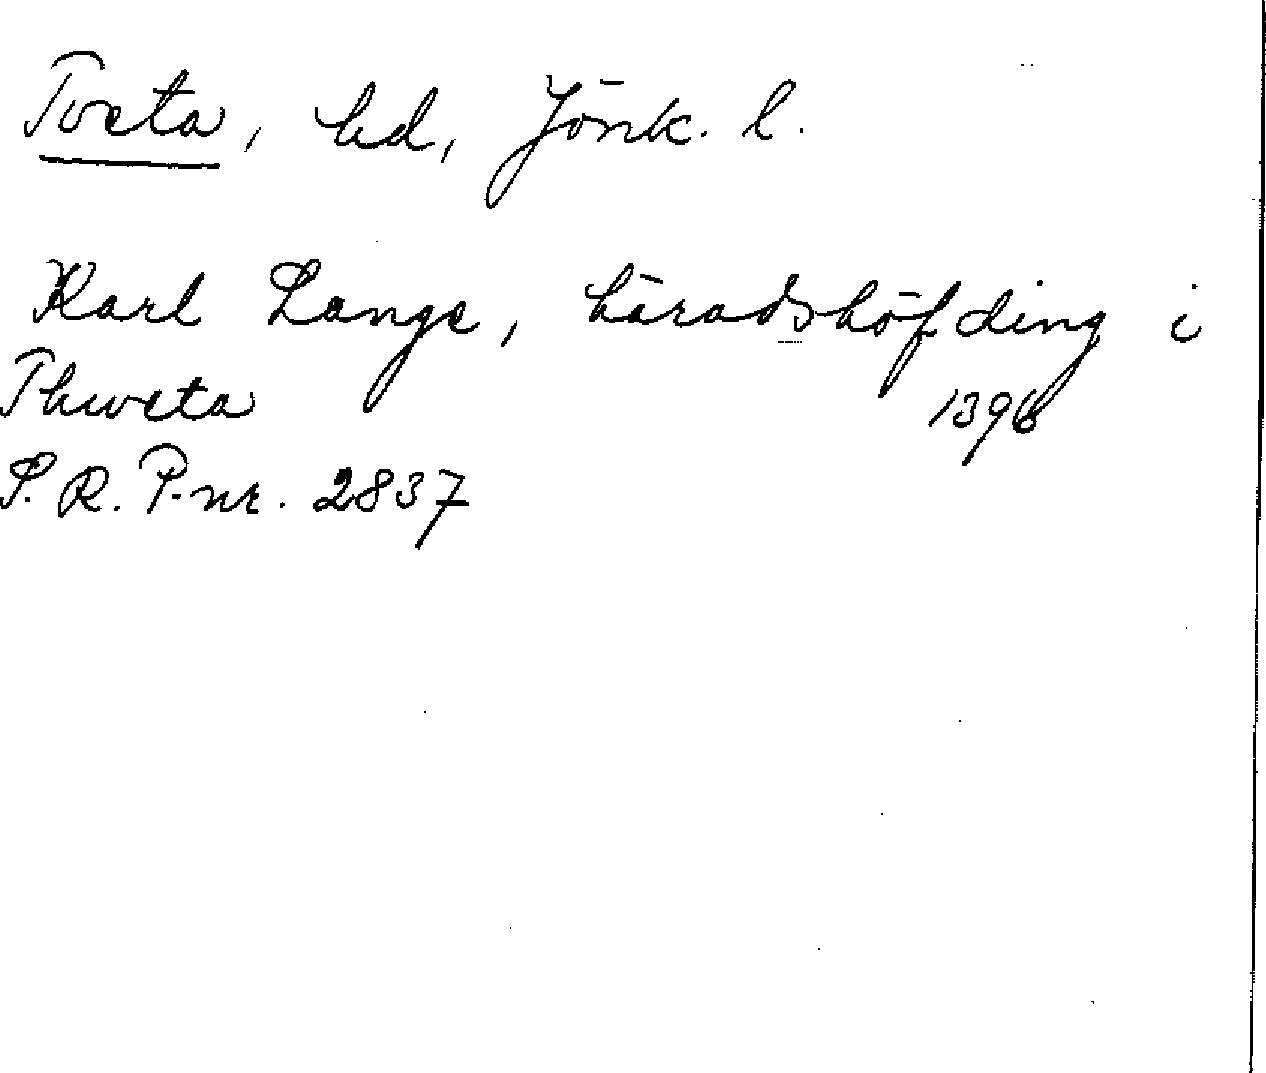 Tveta, hd, Jönk. l.
Karl Lange, häradshöfding i
Thweta 1396
S. R. P. nr. 2837